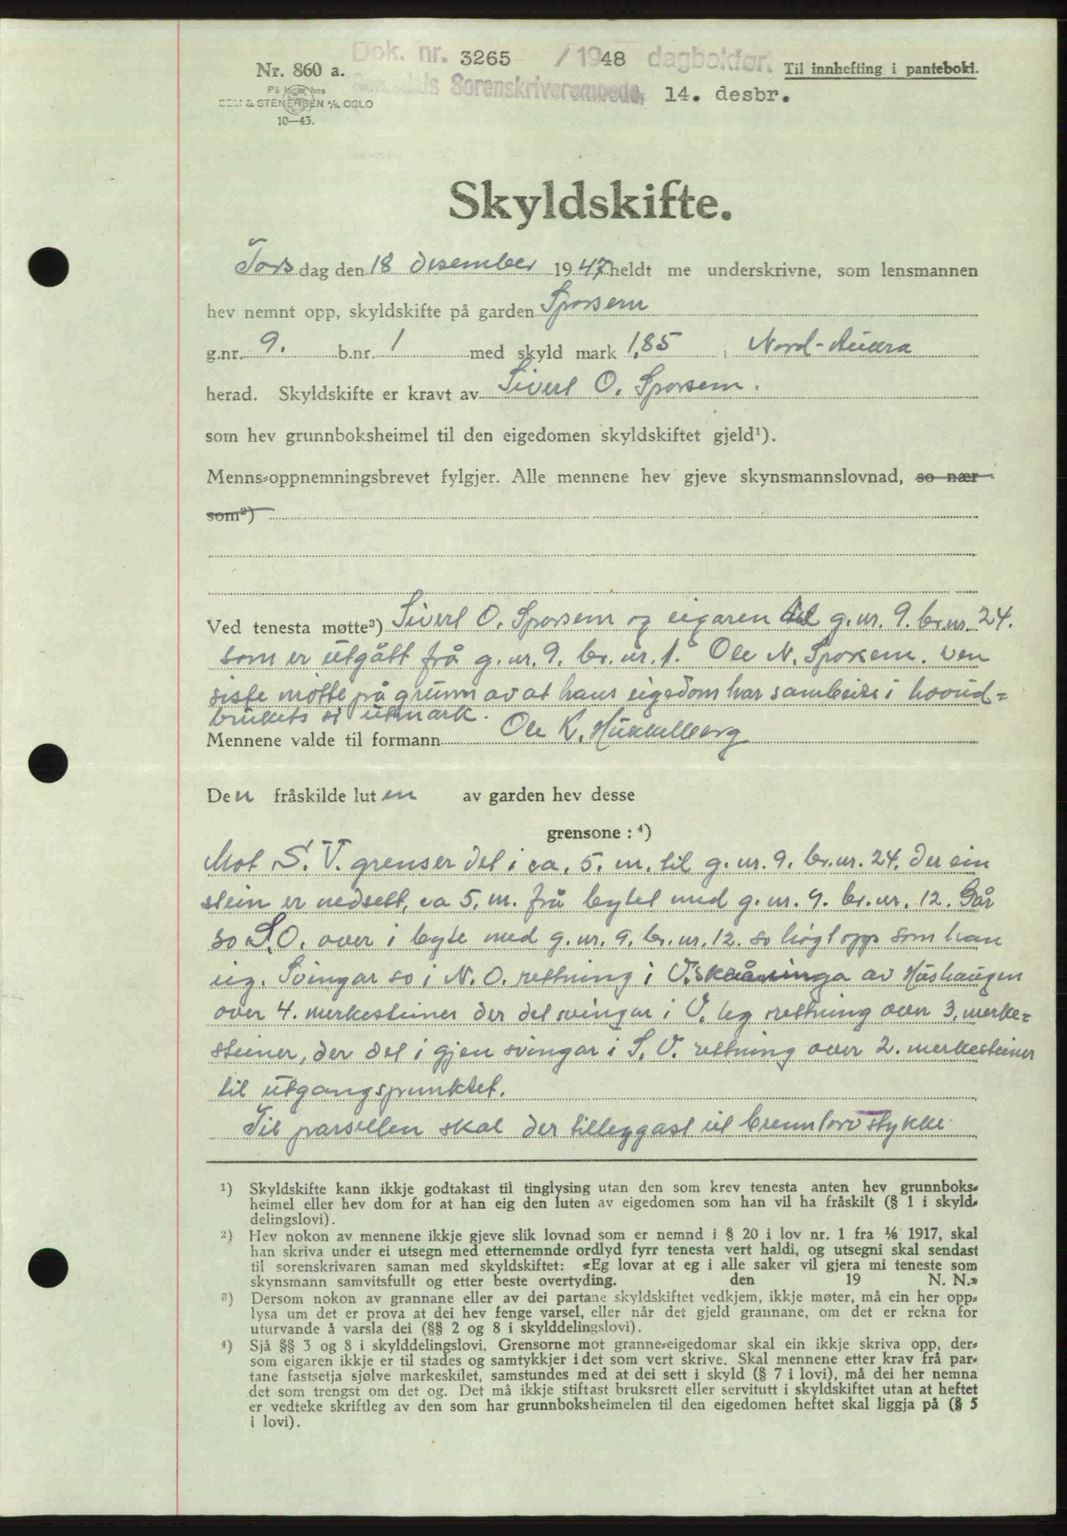 Dok. nr. 3265 / 1948 dagbokført
Nr. 860 a. Til innhefting i pantebok.
Romsdals Sorenskriverembede, 14. desbr.
På lager hos
SEM & STENERSEN A/S, OSLO
10—45.
Skyldskifte.
Tors dag den 18 desember 1947 heldt me underskrivne, som lensmannen
hev nemnt opp, skyldskifte på garden Sporsem
g.nr. 9. b.nr. 1 med skyld mark 1,85 i Nord-Aukra
herad. Skyldskifte er kravt av Sivert O. Sporsem.
som hev grunnboksheimel til den eigedomen skyldskiftet gjeld¹).
Menns-oppnemningsbrevet fylgjer. Alle mennene hev gjeve skynsmannslovnad, so nær
som²)
Ved tenesta møtte³) Sivert O. Sporsem og eigaren til g.nr. 9. br.nr. 24.
som er utgått frå g.nr. 9. br.nr. 1. Ole N. Sporsem. Den
siste møtte på grunn av at hans eigedom har sambeite i hovud=
brukets si utmark.
Mennene valde til formann Ole K. Hukkelberg
Den fråskilde luten av garden hev desse
grensone : ⁴)
Mot S. V. grenser det i ca. 5. m. til g.nr. 9. br.nr. 24. der ein
stein er nedsett, ca 5. m. frå bytet med g.nr. 9. br.nr. 12. Går
so S.O. over i byte med g.nr. 9. br.nr. 12. so høgt opp som han
eig. Svingar so i N.O. rettning i V. skråninga av Hushaugen
over 4. merkesteiner der det svingar i V. leg rettning over 3. merke=
steiner, der det i gjen svingar i S.V. rettning over 2. merkesteiner
til utgangspunktet.
Til parsellen skal der tilleggast eit brenntorvstykke
¹) Skyldskifte kann ikkje godtakast til tinglysing utan den som krev tenesta anten hev grunnboks-
heimel eller hev dom for at han eig den luten av eigedomen som han vil ha fråskilt (§ 1 i skyld-
delingslovi).
²) Hev nokon av mennene ikkje gjeve slik lovnad som er nemnd i § 20 i lov nr. 1 fra 1/6 1917, skal
han skriva under ei utsegn med etternemnde ordlyd fyrr tenesta vert haldi, og utsegni skal sendast
til sorenskrivaren saman med skyldskiftet: «Eg lovar at eg i alle saker vil gjera mi teneste som
skynsmann samvitsfullt og etter beste overtyding. den 19 N. N.»
³) Dersom nokon av grannane eller av dei partane skyldskiftet vedkjem, ikkje møter, må ein her opp-
lysa um det er prova at dei hev fenge varsel, eller når det gjeld grannane, om det er rekna for
uturvande å varsla dei (§§ 2 og 8 i skylddelingslovi).
⁴) Sjå §§ 3 og 8 i skylddelingslovi. Grensorne mot granne-eigedomar skal ein ikkje skriva opp, der-
som eigaren ikkje er til stades og samtykkjer i det som vert skrive. Skal mennene etter krav frå par-
tane fastsetja sjølve markeskilet, samstundes med at dei sett i skyld (§ 7 i lovi), må dei her nemna
det som trengst om det og. Det må ikkje stiftast bruksrett eller servitutt i skyldskiftet utan at heftet
er vedteke skriftleg av den som har grunnboksheimelen til den eigedomen heftet skal liggja på (§ 5
i lovi).